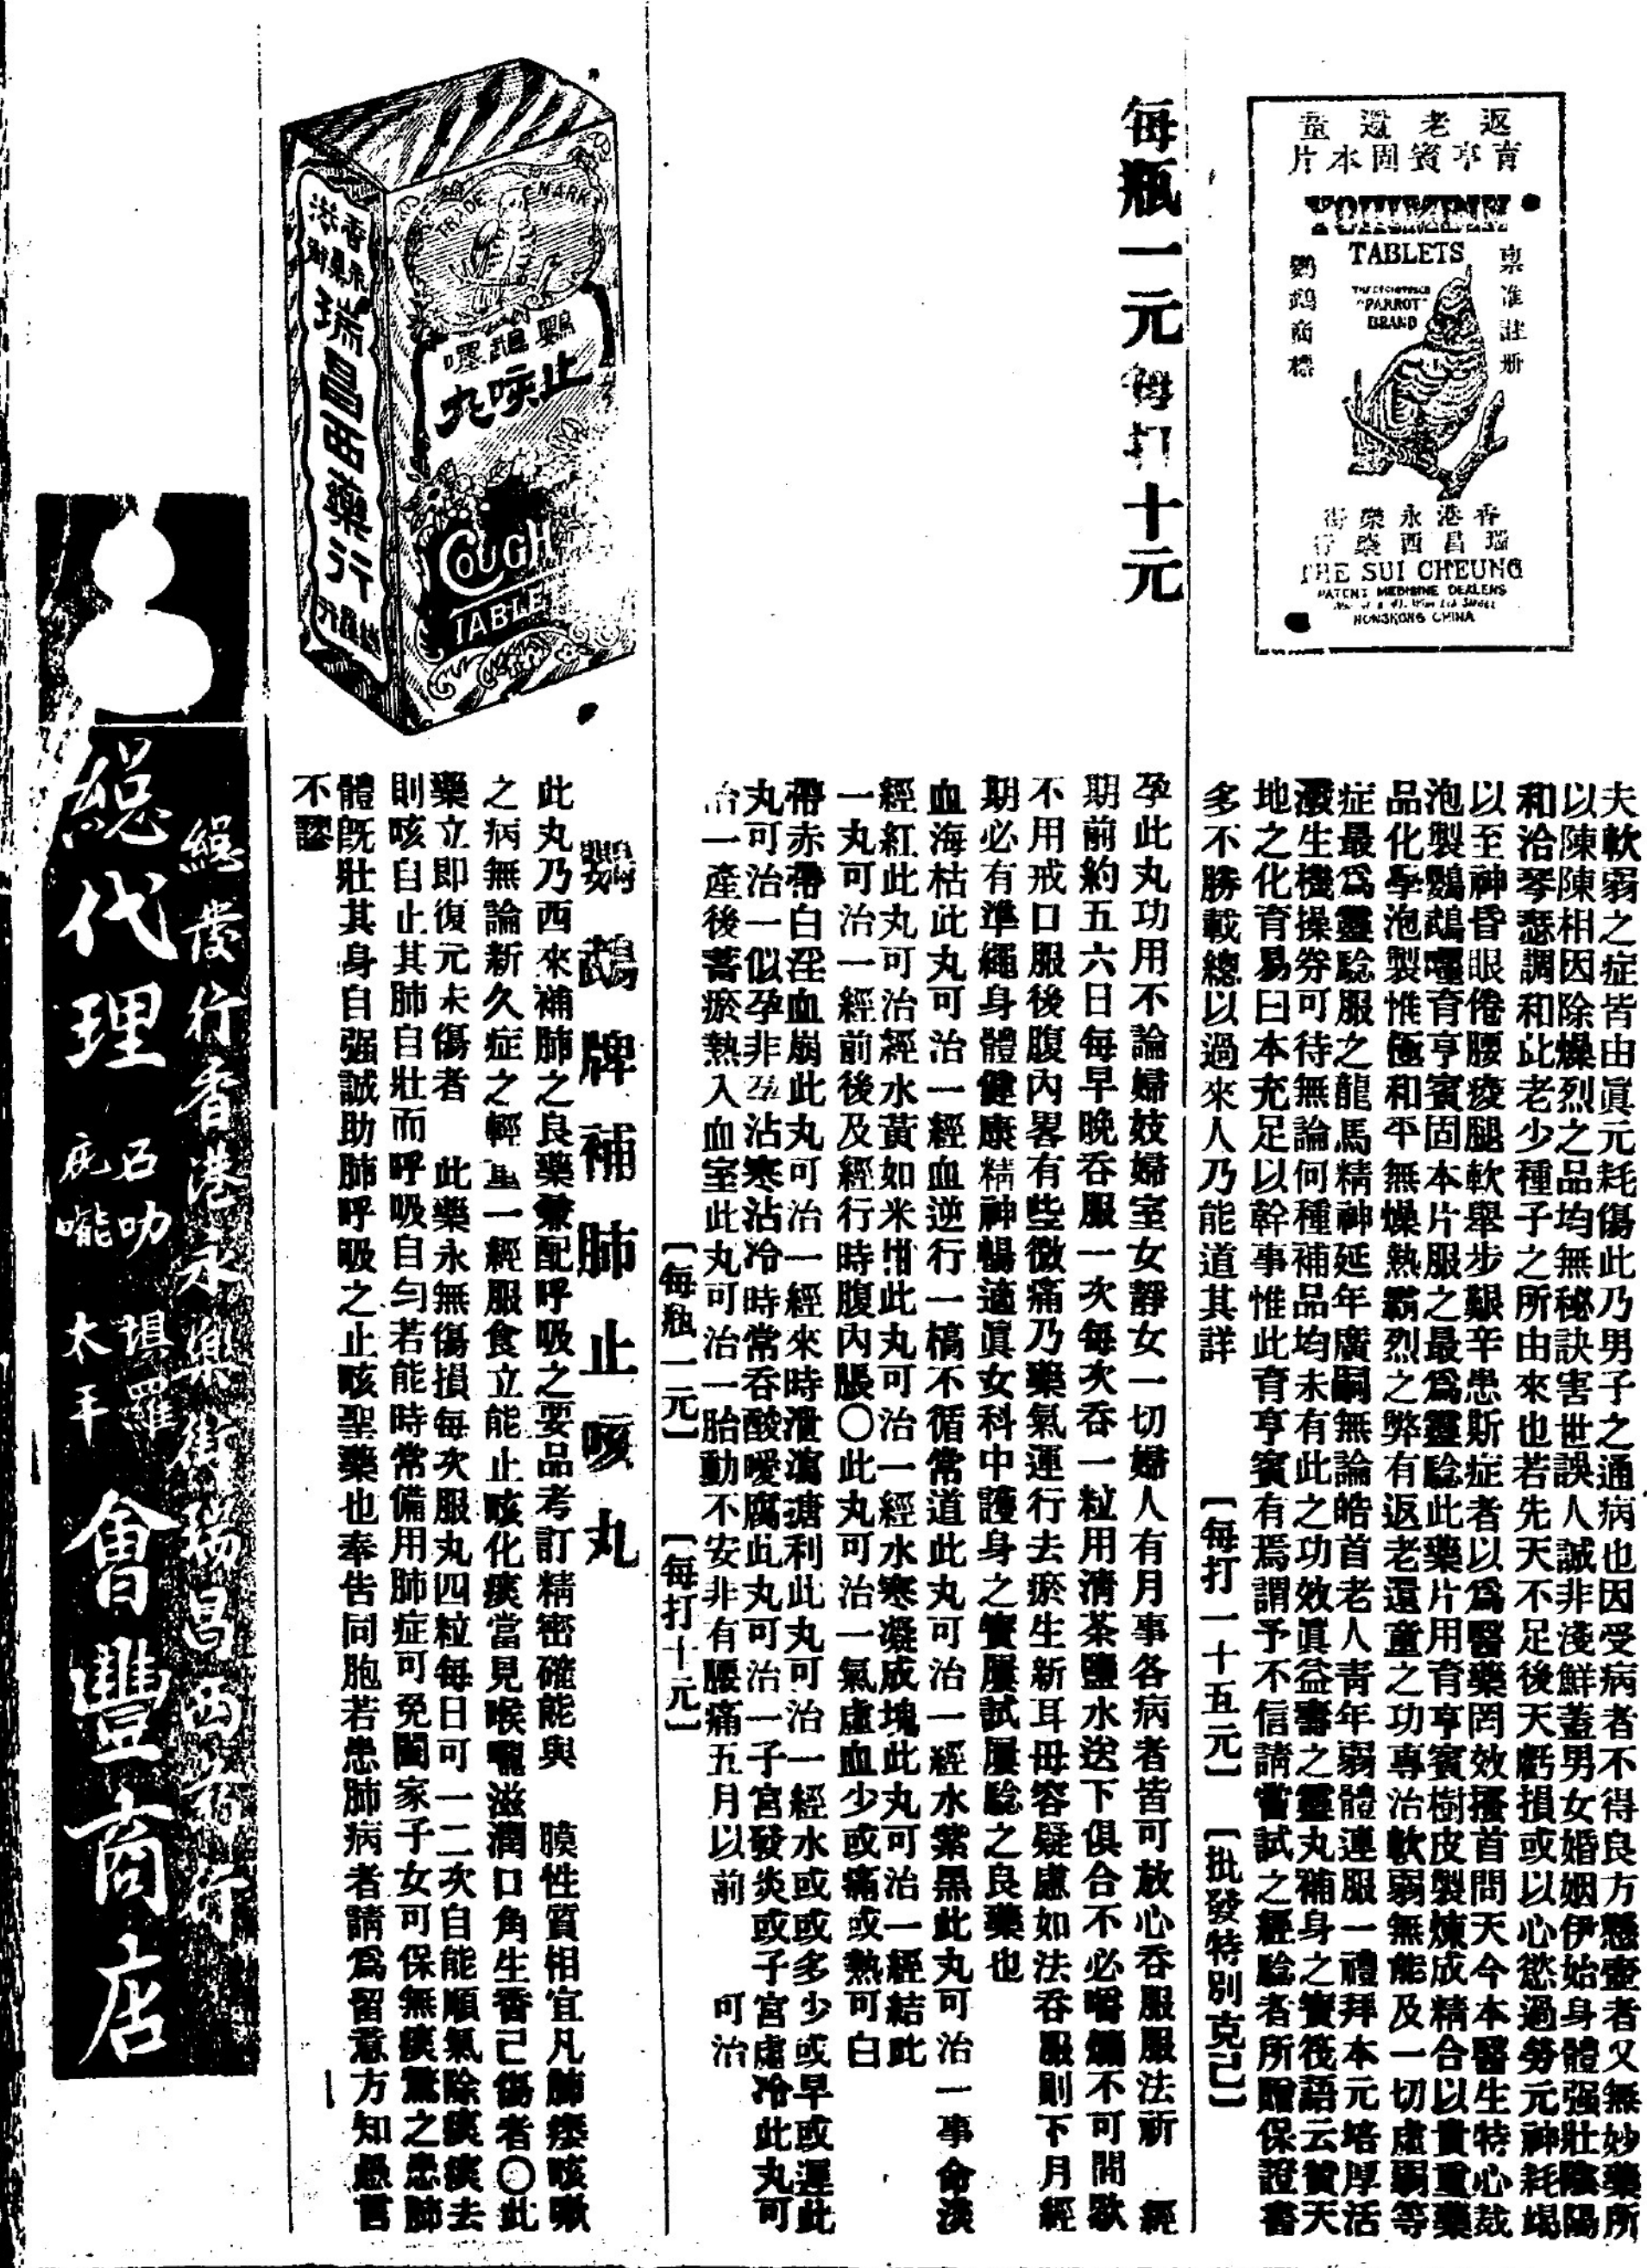 返老還童
育亨賓固本片
TABLETS
"PARROT"
BRAND
禀准註册
鸚鵡商標
香港永樂街
瑞昌西藥行
THE SUI CHEUNG
PATENT MEDISINE DEALERS
HONGKONG CHINA
夫軟弱之症皆由眞元耗傷此乃男子之通病也因受病者不得良方懸壺者又無妙藥所
以陳陳相因除燥烈之品均無秘訣害世誤人誠非淺鮮蓋男女婚姻伊始身體强壯陰陽
和洽琴瑟調和此老少種子之所由來也若先天不足後天虧損或以心慾過勞元神耗竭
以至神昏眼倦腰痠腿軟舉步艱辛患斯症者以爲醫藥罔效搔首問天今本醫生特心裁
泡製鸚鵡嚜育亨賓固本片服之最爲靈驗此藥片用育亨賓樹皮製煉成精合以貴重藥
品化學泡製惟極和平無燥熱霸烈之弊有返老還童之功專治軟弱無能及一切虛弱等
症最爲靈驗服之龍馬精神延年廣嗣無論皓首老人靑年弱體連服一禮拜本元培厚活
潑生機操券可待無論何種補品均未有此之功效眞益壽之靈丸補身之寶筏語云贊天
地之化育易曰本充足以幹事惟此育亨賓有焉謂予不信請嘗試之經驗者所贈保證書
多不勝載總以過來人乃能道其詳
【每打一十五元】
【批發特別克己】
每瓶一元每打十元
孕此丸功用不論婦妓婦室女靜女一切婦人有月事各病者皆可放心吞服服法祈 經
期前約五六日每早晚吞服一次每次吞一粒用清茶鹽水送下俱合不必嚼爛不可間歇
不用戒口服後腹內畧有些微痛乃藥氣運行去瘀生新耳毋容疑慮如法吞服則下月經
期必有準繩身體健康精神暢適眞女科中護身之寶屢試屢驗之良藥也
血海枯此丸可治一經血逆行一槁不循常道此丸可治一經水紫黑此丸可治一事命淡
經紅此丸可治經水黃如米泔此丸可治一經水寒凝成塊此丸可治一經結此
一丸可治一經前後及經行時腹內脹○此丸可治一氣虛血少或痛或熱可白
帶赤帶白淫血崩此丸可治一經來時泄瀉瘡利此丸可治一經水或或多少或早或遲此
丸可治一似孕非孕沾寒沾冷時常吞酸噯腐此丸可治一子宮發炎或子宮虛冷此丸可
治一產後蓄瘀熱入血室此丸可治一胎動不安非有腰痛五月以前 可治
【每瓶一元】
【每打十元】
TRADE MARK
鸚鵡嚜
止咳丸
COUGH
TABLE
瑞昌西藥行
鸚鵡牌補肺止咳丸
此丸乃西來補肺之良藥兼配呼吸之要品考訂精密確能與 膜性質相宜凡肺痿咳嗽
之病無論新久症之輕重一經服食立能止咳化痰當見喉嚨滋潤口角生香己傷者○此
藥立即復元未傷者 此藥永無傷損每次服丸四粒每日可一二次自能順氣除痰痰去
則咳自止其肺自壯而呼吸自勻若能時常備用肺症可免闔家子女可保無痰驚之患肺
體旣壯其身自强誠助肺呼吸之止咳聖藥也奉告同胞若患肺病者請爲留意方知愚言
不謬
總發行香港永樂街瑞昌西藥行
總代理
石叻
庇嚨
壩羅
太平
會豐商店